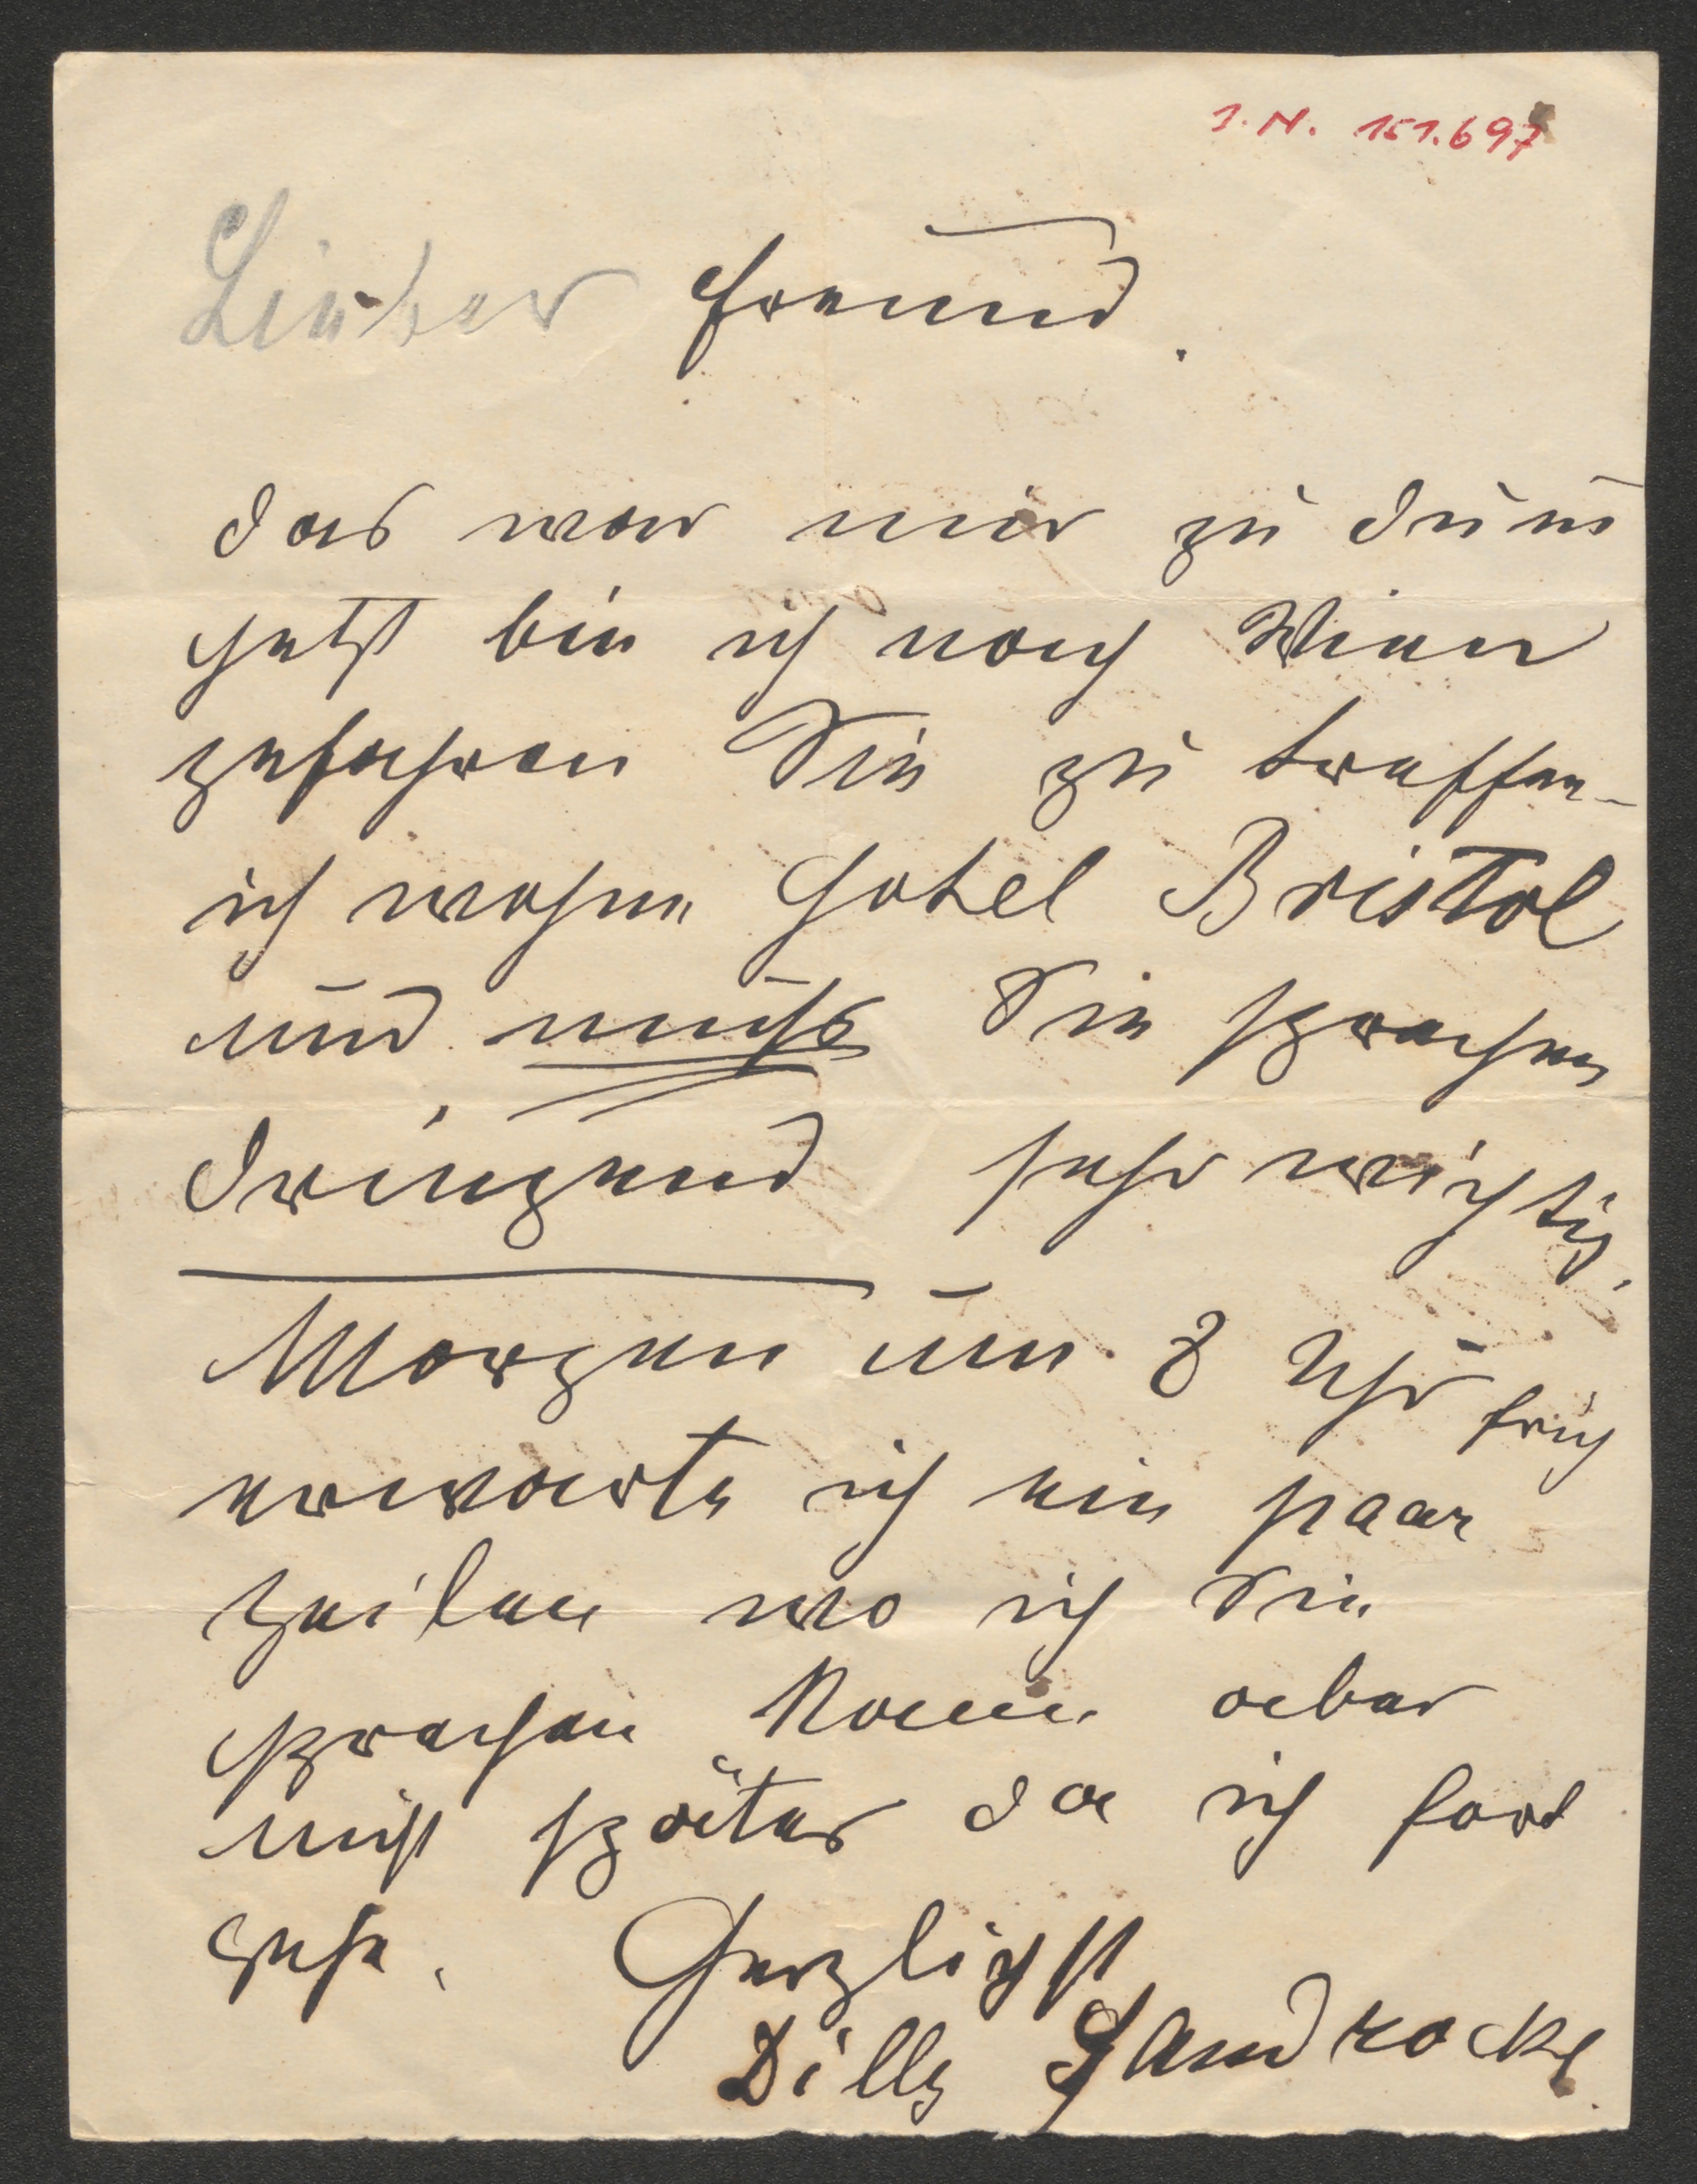 I. N. 151.697
Lieber Freund.
das war mir zu dum̄
jetzt bin ich nach Wien
gefahren Sie zu treffen –
ich wohne Hotel Bristol
und muss Sie sprechen
dringend sehr wichtig.
Morgen um 8 Uhr früh
erwarte ich ein paar
Zeilen wo ich Sie
sprechen kann aber
nicht später da ich fort
gehe. Herzlichst
Dilly Sandrock